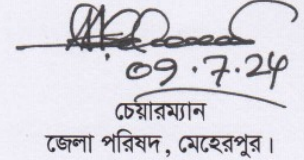 09.7.24
চেয়ারম্যান
জেলা পরিষদ, মেহেরপুর।